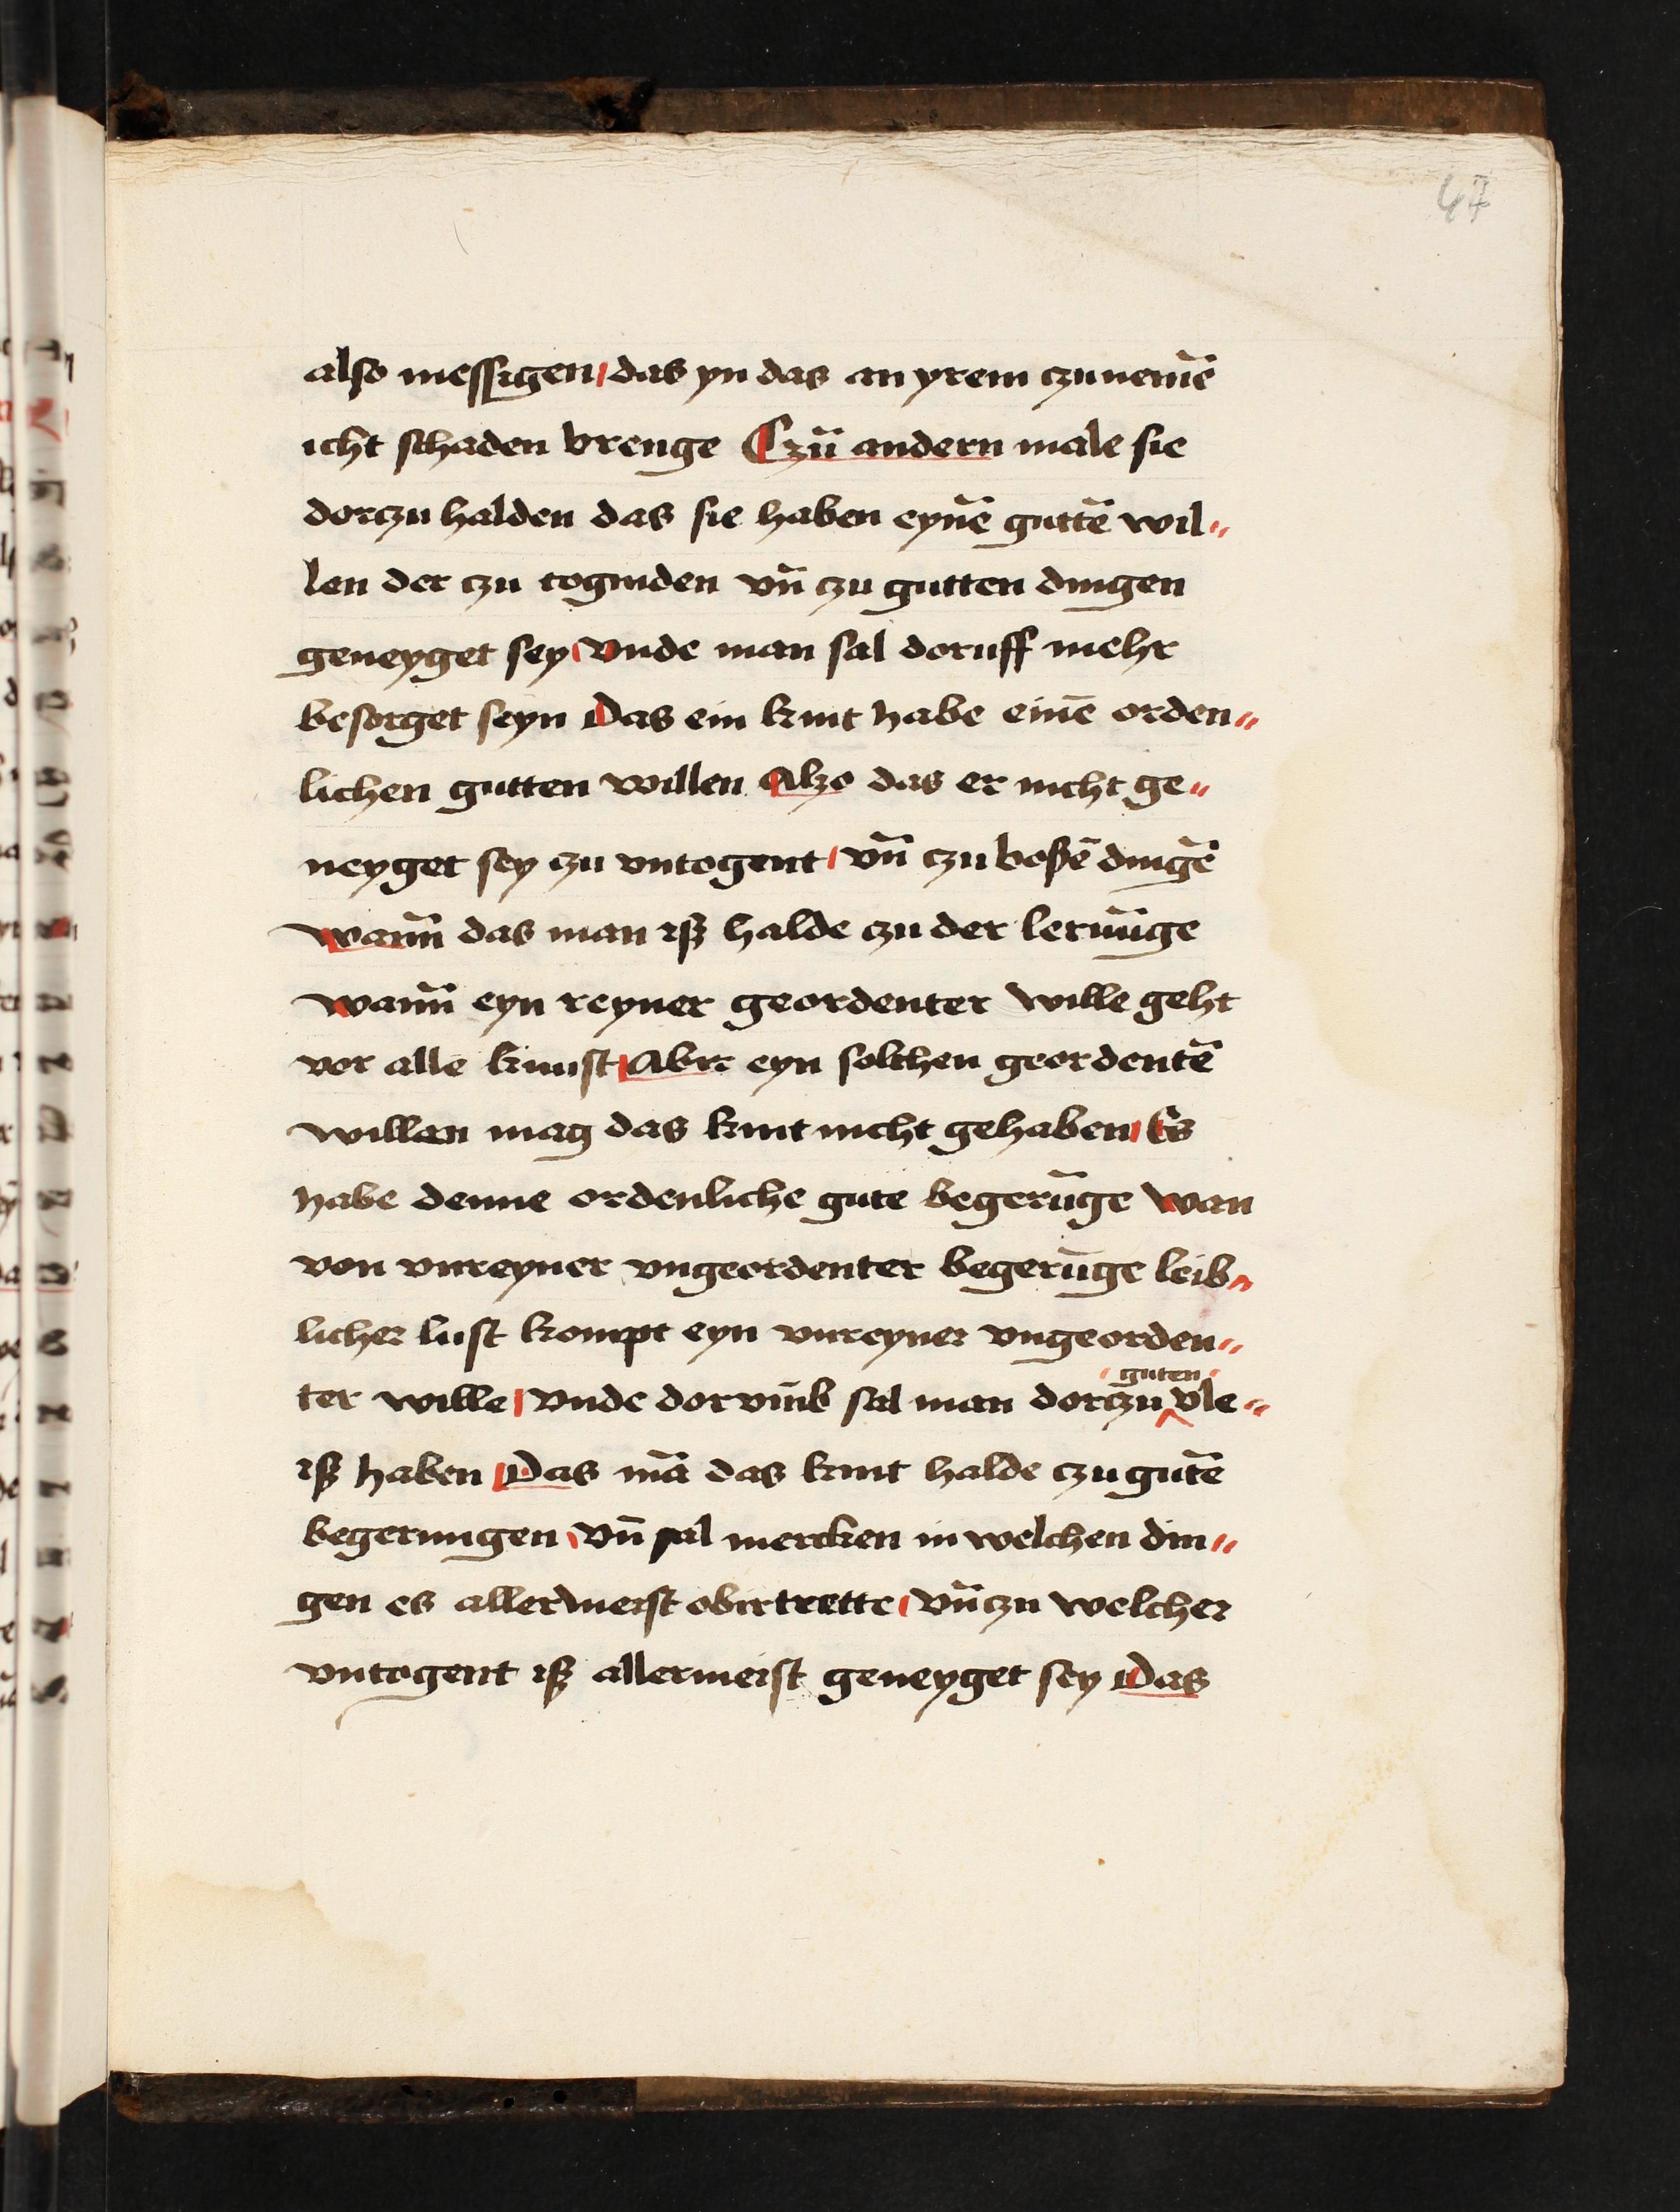 47
also messigen / das yn das an yrem czunemē
icht schaden brenge Czū andern male sie
dorczu halden das sie haben eynē guttē wil„
len der czu togunden vn̄ czu gutten dingen
geneyget sey / vnde man sal doruff mehr
besorget seyn Das ein kint habe einē orden„
lichen gutten willen Alzo das er nicht ge„
neyget sey czu vntogent / vn̄ czu boßē dingē
wann̄ das man iß halde czu der lernūge
wann̄ eyn reyner geordenter wille geht
vor alle kunst / Abir eyn solchen geordentē
willen mag das kint nicht gehaben / Es
habe denne ordenliche gute begerūge wan
von vnreyner vngeordenter begerūge leib„
licher lust kompt eyn vnreyner vngeorden„
guten
ter wille / vnde dor vm̄b sal man dorczu vle„
iß haben / Das mā das kint halde czu gutē
begerungen / vn̄ sal mercken in welchen din„
gen es allermeist obirtrette / vn̄ czu welcher
vntogent iß allermeist geneyget sey Das